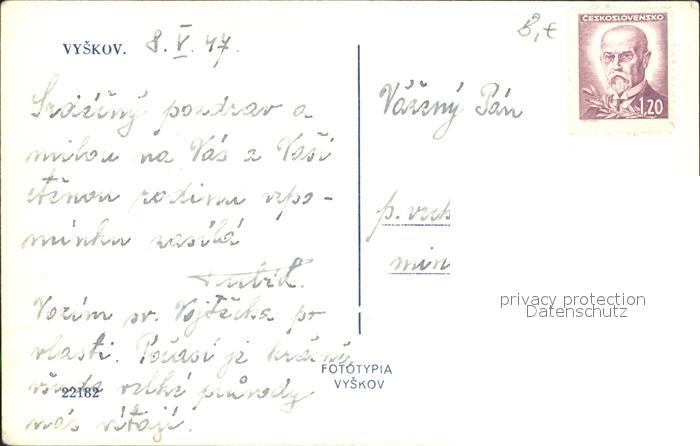 VYŠKOV. 8. V. 47.
Srdečný pozdrav a
milou na Vás a Vaši
ctěnou rodinu vzpo-
mínku zasílá
Vozím sv. Vojtěcha po
vlasti. Počasí je krásné,
všude velké průvody
nás vítají.
22182
FOTOTYPIA
VYŠKOV
ČESKOSLOVENSKO
1,20
Vážený Pán
p. vrch
min
privacy protection
Datenschutz